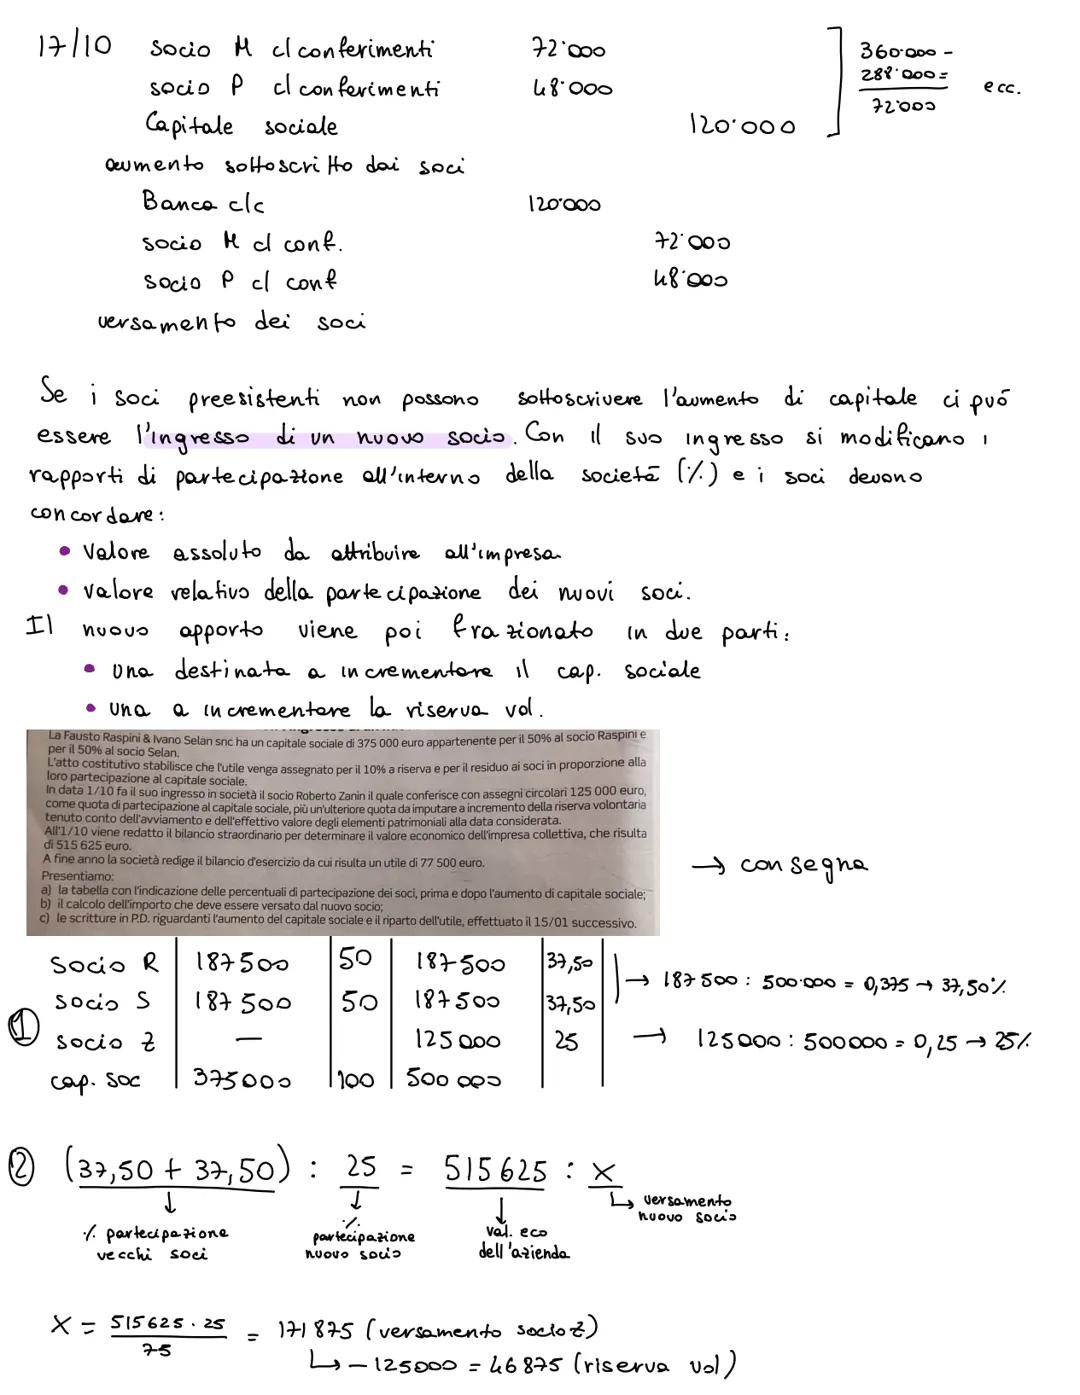 17/10 socio M c/conferimenti 72'000
socio P c/conferimenti 48'000
Capitale sociale 120'000
360'000 -
288'000 =
72'000
ecc.
aumento sottoscritto dai soci
Banca c/c 120'000
socio M c/ conf. 72'000
socio P c/ conf 48'000
versamento dei soci
Se i soci preesistenti non possono sottoscrivere l'aumento di capitale ci può
essere l'ingresso di un nuovo socio. Con il suo ingresso si modificano i
rapporti di partecipazione all'interno della società (%) e i soci devono
concordare:
• Valore assoluto da attribuire all'impresa
• valore relativo della partecipazione dei nuovi soci.
Il nuovo apporto viene poi frazionato in due parti:
• una destinata a incrementare il cap. sociale
• una a incrementare la riserva vol.
La Fausto Raspini & Ivano Selan snc ha un capitale sociale di 375 000 euro appartenente per il 50% al socio Raspini e
per il 50% al socio Selan.
L'atto costitutivo stabilisce che l'utile venga assegnato per il 10% a riserva e per il residuo ai soci in proporzione alla
loro partecipazione al capitale sociale.
In data 1/10 fa il suo ingresso in società il socio Roberto Zanin il quale conferisce con assegni circolari 125 000 euro,
come quota di partecipazione al capitale sociale, più un'ulteriore quota da imputare a incremento della riserva volontaria
tenuto conto dell'avviamento e dell'effettivo valore degli elementi patrimoniali alla data considerata.
All'1/10 viene redatto il bilancio straordinario per determinare il valore economico dell'impresa collettiva, che risulta
di 515 625 euro.
A fine anno la società redige il bilancio d'esercizio da cui risulta un utile di 77 500 euro.
Presentiamo:
a) la tabella con l'indicazione delle percentuali di partecipazione dei soci, prima e dopo l'aumento di capitale sociale;
b) il calcolo dell'importo che deve essere versato dal nuovo socio;
c) le scritture in P.D. riguardanti l'aumento del capitale sociale e il riparto dell'utile, effettuato il 15/01 successivo.
→ consegna
① socio R 187500 50 187500 37,50 → 187500 : 500'000 = 0,375 → 37,50%
socio S 187500 50 187500 37,50
socio Z — 125000 25 → 125000 : 500000 = 0,25 → 25%
cap. soc 375000 100 500000
② (37,50 + 37,50) : 25 = 515625 : x
↓ ↓ ↓ ↳ versamento
nuovo socio
% partecipazione
vecchi soci
%
partecipazione
nuovo socio
val. eco
dell'azienda
X = 515625 · 25 / 75 = 171875 (versamento socio Z)
↳ - 125000 = 46875 (riserva vol)